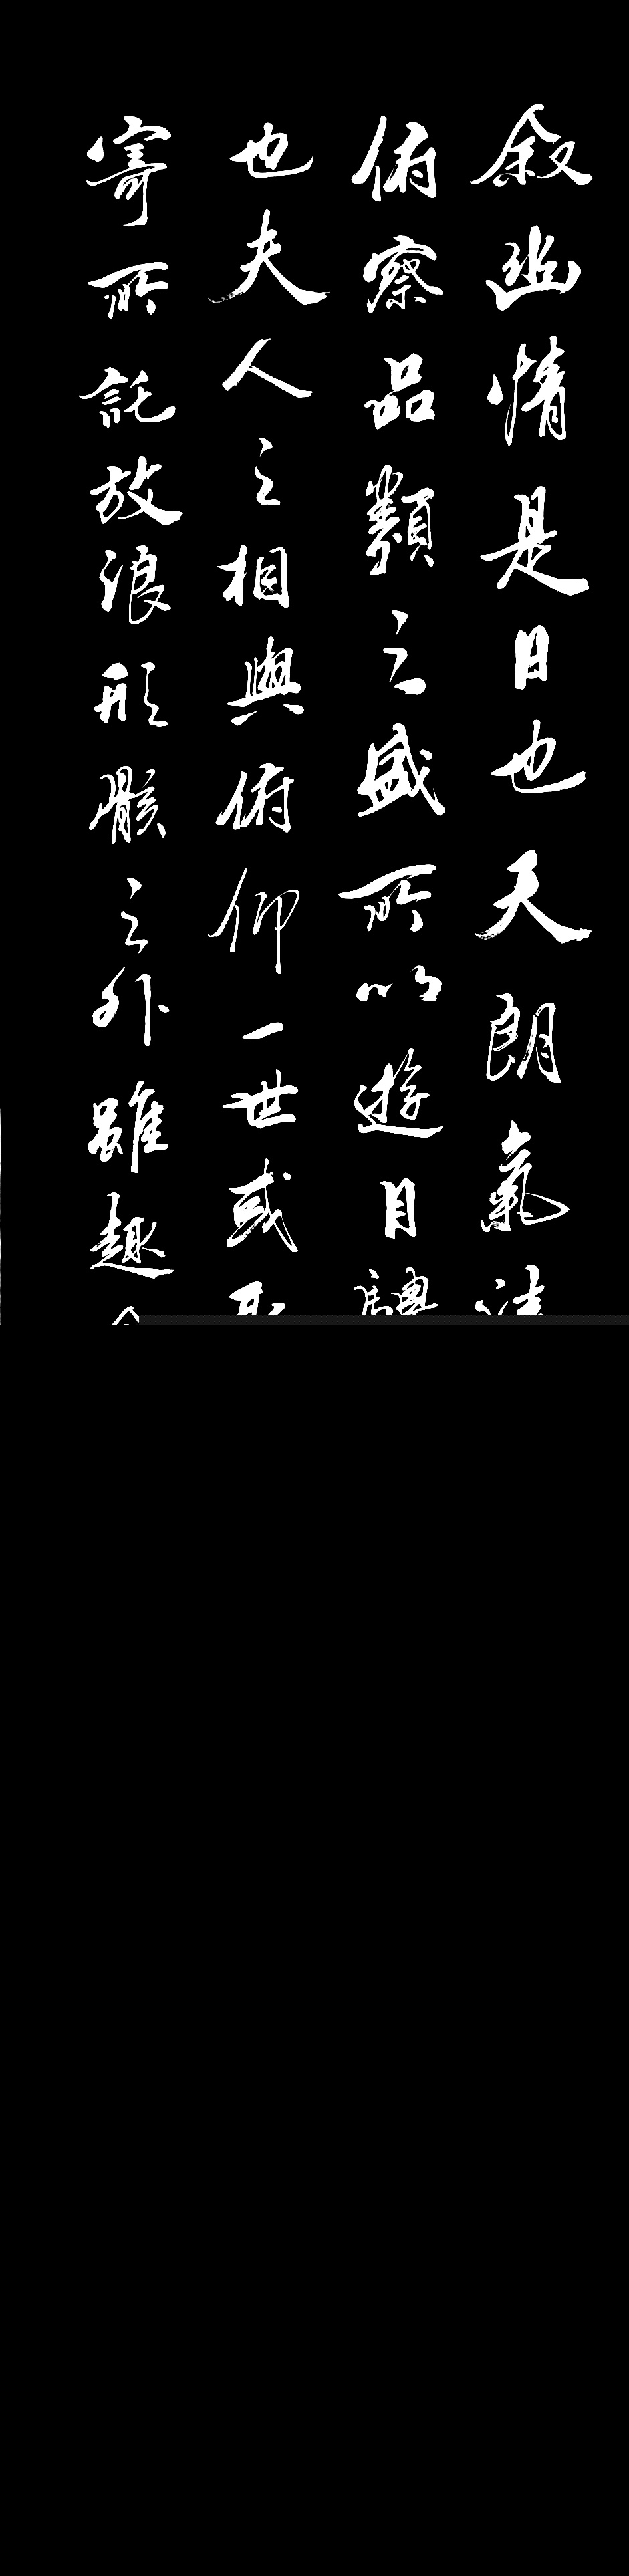 叙幽情是日也天朗氣清
俯察品類之盛所以遊目騁
也夫人之相與俯仰一世或取
寄所託放浪形骸之外雖趣